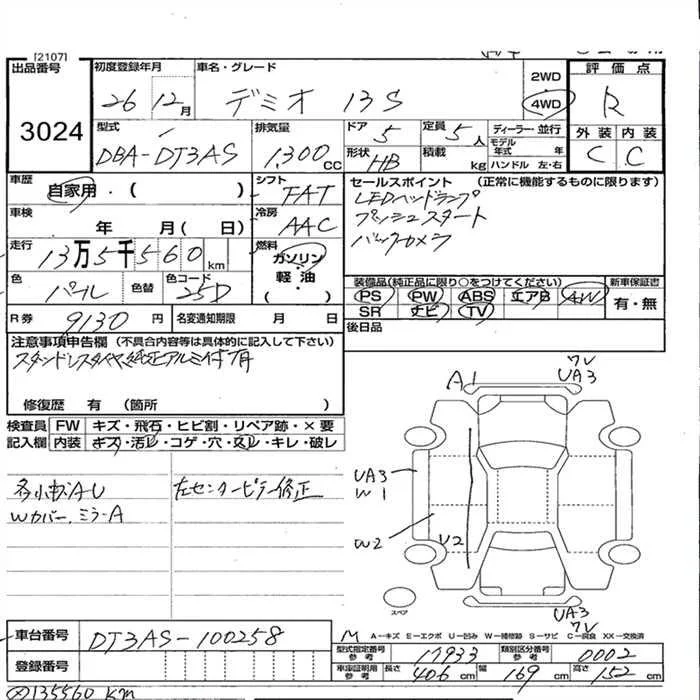 [2107]
出品番号
3024
初度登録年月
26 12月
車名・グレード
デミオ 13S
2WD
4WD
評価点
R
外装 内装
C C
型式
DBA-DJ3AS
排気量
1,300 CC
ドア
5
定員
5人
形状
HB
積載
kg
ディーラー・並行
モデル年式 年
ハンドル 左・右
車歴
自家用・( )
シフト
FAT
セールスポイント (正常に機能するものに限ります)
LEDヘッドランプ
プッシュスタート
バックカメラ
車検
年 月( 日)
冷房
AAC
走行
13万5千560km
燃料
ガソリン・
軽油・
( )
色
パール
色替
色コード
25D
装備品(純正品に限り○をつけてください)
PS PW ABS エアB AW
SR ナビ TV
新車保証書
有・無
R券
9130円
名変通知期限 月 日
後日品
注意事項申告欄(不具合内容等は具体的に記入して下さい)
スタッドレスタイヤ純正アルミ付有
修復歴 有 (箇所 )
検査員
記入欄
FW キズ・飛石・ヒビ割・リペア跡・×要
内装 キズ・汚レ・コゲ・穴・スレ・キレ・破レ
各小キズAU
Wカバー、ミラーA
左センターピラー修正
A1
ワレ
UA3
UA3
W1
W2
U2
スペア
UA3
ワレ
車台番号
DJ3AS-100258
登録番号
M A−キズ E−エクボ U−凹み W−補修跡 S−サビ C−腐食 XX−交換済
型式指定番号
参考
17933
類別区分番号
参考
0002
車庫証明用
参考
長さ 406cm 幅 169cm 高さ 152cm
135560 km